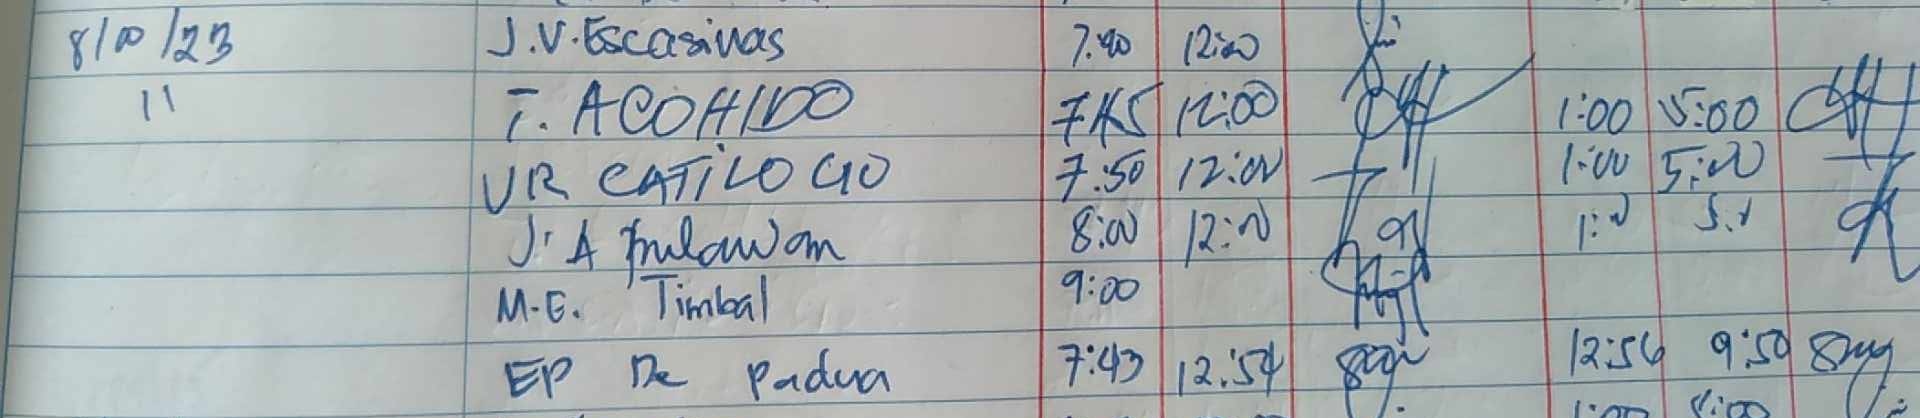 8/10/23 J.V. Escasinas 7:40 12:00
11 T. ACOHIDO 7:45 12:00 1:00 5:00
VR CATILOGO 7:50 12:00 1:00 5:00
J. A 8:00 12:00 1:00 5:00
M.E. Timbal 9:00
EP De Padua 7:43 12:54 12:56 9:50
1:00 5:00